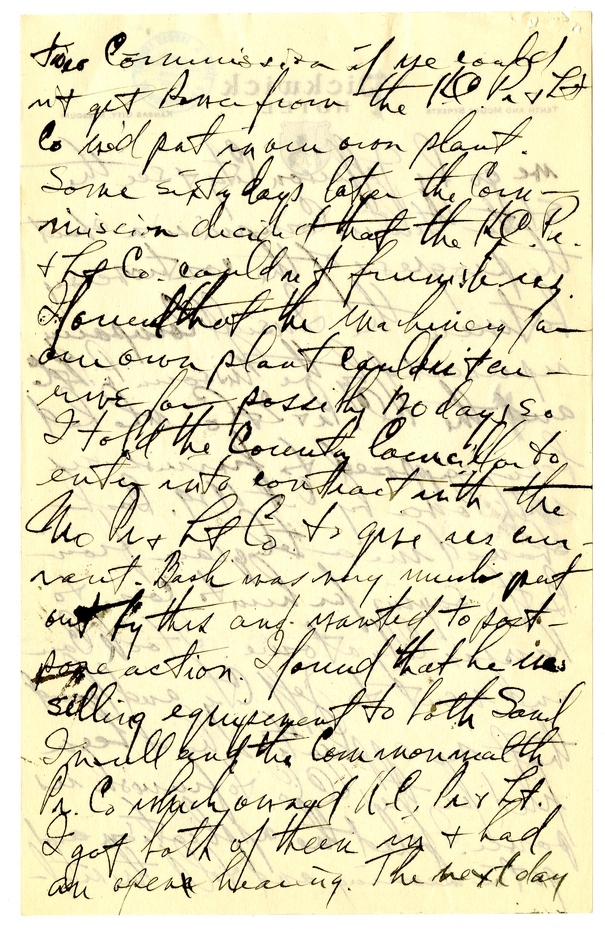 two Commission if we could
not get Power from the K.C. Pr & Lt
Co we'd put in our own plant.
Some sixty days later the Com-
mission decided that the K.C. Pr.
& Lt Co. couldn't furnish us.
I found that the machinery for
our own plant couldn't ar-
rive for possibly 120 days so
I told the County Councillor to
enter into contract with the
Mo Pr & Lt Co to give us cur-
rant. Bash was very much put
out by this and wanted to post-
pone action. I found that he was
selling equipement to both Saml
Insull and the Commonwealth
Pr. Co which owned K.C. Pr & Lt.
I got both of them in & had
an open hearing. The next day
Pickwick
HOTEL